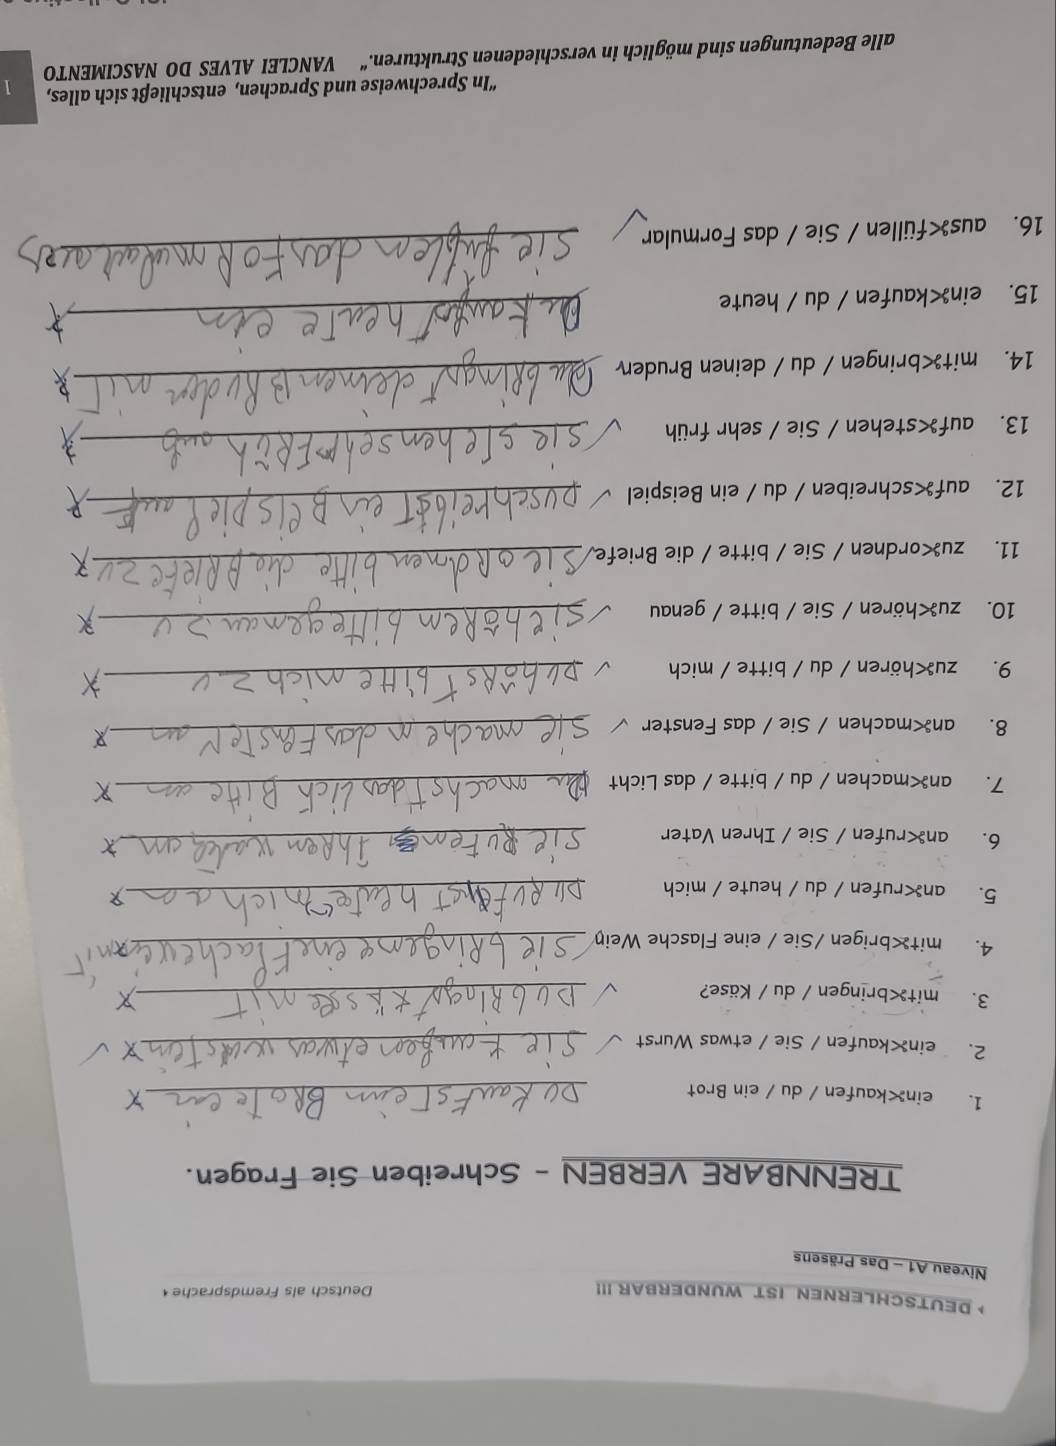 DEUTSCHLERNEN IST WUNDERBAR !!! Deutsch als Fremdsprache
Niveau A1 – Das Präsens
TRENNBARE VERBEN - Schreiben Sie Fragen.
1. ein><kaufen / du / ein Brot DU kaufst ein BRote ein x
2. ein><kaufen / Sie / etwas Wurst ✓ Sie kaufen etwas wurst ein x ✓
3. mit><bringen / du / Käse? ✓ DU bRingst käse mit x
4. mit><brigen /Sie / eine Flasche Wein ✓ Sie bRingene eine Flache wein mit
5. an><rufen / du / heute / mich DU RUFenst heute mich an x
6. an><rufen / Sie / Ihren Vater Sie RuFen IhRen vater an x
7. an><machen / du / bitte / das Licht Du machst das lich Bitte an x
8. an><machen / Sie / das Fenster ✓ Sie machen das FensTeR an x
9. zu><hören / du / bitte / mich ✓ DU höRst bitte mich zu x
10. zu><hören / Sie / bitte / genau ✓ Sie höRem bitte genau zu x
11. zu><ordnen / Sie / bitte / die Briefe ✓ Sie oRdnen bitte die BRieFe zu x
12. auf><schreiben / du / ein Beispiel ✓ DU schreibst ein Beispiel auf x
13. auf><stehen / Sie / sehr früh ✓ Sie stehen sehr FRüh auf x
14. mit><bringen / du / deinen Bruder Du bRingst deinen BRuder mit x
15. ein><kaufen / du / heute Du kaufst heute ein x
16. aus><füllen / Sie / das Formular ✓ Sie füllen das FoRmular aus
"In Sprechweise und Sprachen, entschließt sich alles,
alle Bedeutungen sind möglich in verschiedenen Strukturen." VANCLEI ALVES DO NASCIMENTO
1